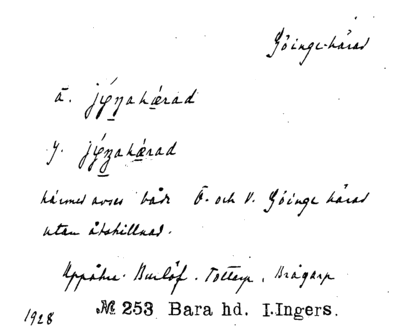 Göinge härad
ä. jǿŋahǽrad
y. jǿŋahǽrad
härmed avses både Ö. och V. Göinge härad
utan åtskillnad.
Uppåkra. Burlöf. Tottarp. Brågarp
1928 № 253 Bara hd. I. Ingers.